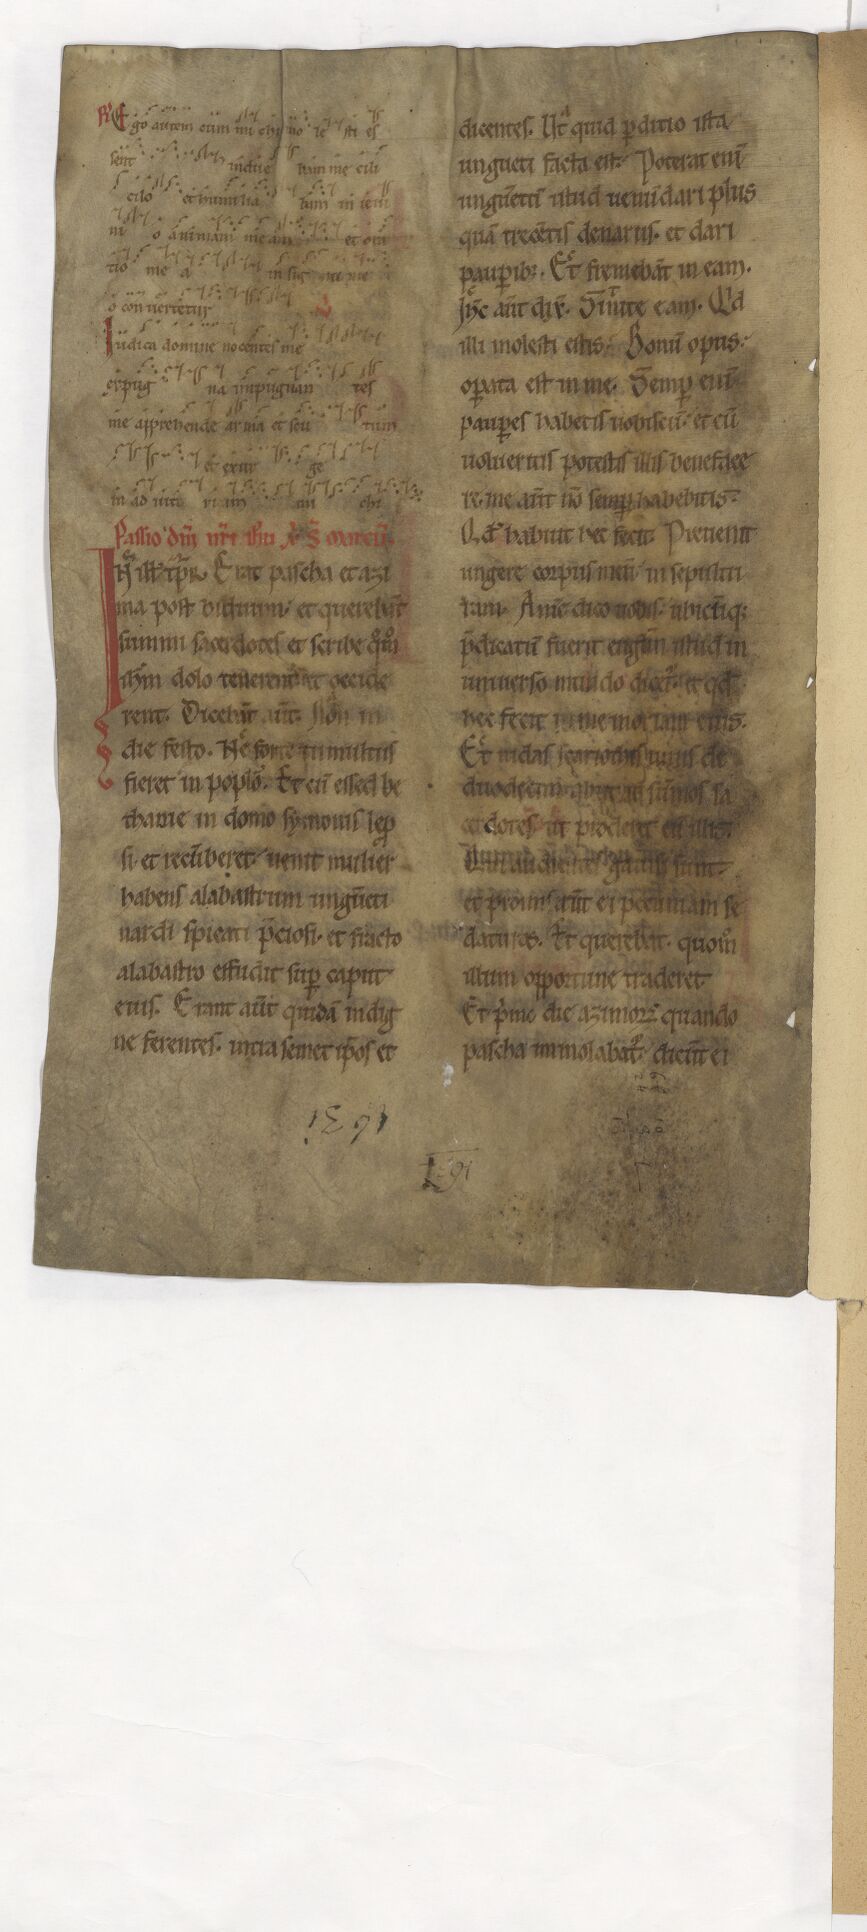 R Ego autem cum mi chi mo le sti es
sent indue bam me cili
cilo et humilia bam in ieiu
ni o animam me am et ora
tio me a in sinu me
o con vertetur
Iudica domine nocentes me
expug na inpugnan tes
me apprehende arma et scu tum
et exur ge
in ad iuto ri um mi chi
Passio dn̄i nr̄i ihu x̄ s̄ marcū.
IN ill' tp̄r. Erat pascha et azi
ma post biduum. et querebāt
summi sacerdotes et scribe qm̄o
ihm̄ dolo tenerent et occide
rent. Dicebāt aūt. Non in
die festo. Ne forte tumultus
fieret in poplō. Et cū esset be
thanie in domo symonis lep
si et recūberet. uenit mulier
habens alabastrum ungūeti
nardi spicati p̄ciosi. et fracto
alabastro effudit sup caput
eius. Erant aūt quidā indig
ne ferentes. intra semet ip̄os et
dicentes. Ut quid pditio ista
ungueti facta est. Poterat enī
ungūetū istud uenūdari plus
quā trecētis denariis. et dari
paupib;. Et fremebāt in eam.
Ihc aūt dix̄. Sinite eam. Qd
illi molesti estis. Bonū opus.
opata est in me. Semp enī
paupes habetis uobiscū. et cū
uolueritis potestis illis beneface
re. me aūt nō semp habebitis.
Qd habuit hec fecit. Preuenit
ungere corpus meū in sepultu
ram. Amē dico uobis. ubicūq;
p̄dicatū fuerit eūgłm istud in
uniuerso mundo dicet̄. et qd
hec fecit in me moriam eius.
Et iudas scariothis unus de
duodecim abiit ad sūmos sa
cerdotes ut proderet eū illis.
Qui audientes gauisi sunt.
et promis aūt ei pecuniam se
daturos. Et querebat. quom̄
illum opportune traderet
Et p̄mo die azimoꝝ quando
pascha immolabat̄. dicūt ei
1631
1631